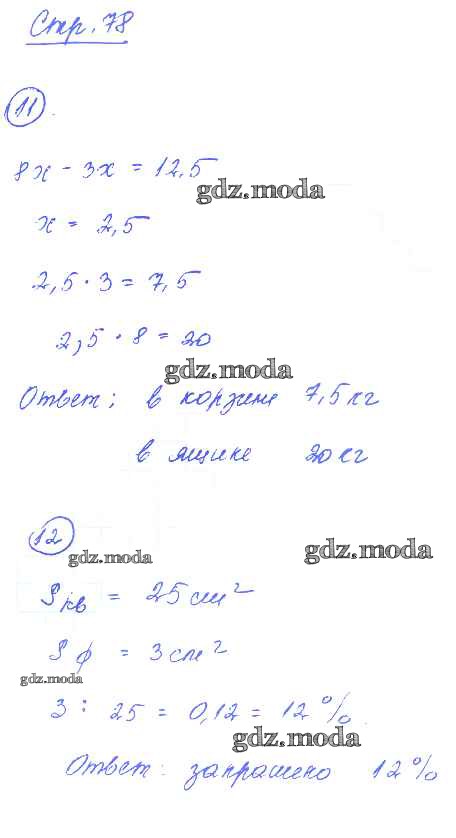 Стр. 78
11.
8x - 3x = 12,5
gdz.moda
x = 2,5
2,5 · 3 = 7,5
2,5 · 8 = 20
gdz.moda
Ответ: в корзине 7,5 кг
в ящике 20 кг
12
gdz.moda
gdz.moda
Sкв = 25 см²
Sф = 3 см²
gdz.moda
3 : 25 = 0,12 = 12 %.
gdz.moda
Ответ: закрашено 12 %